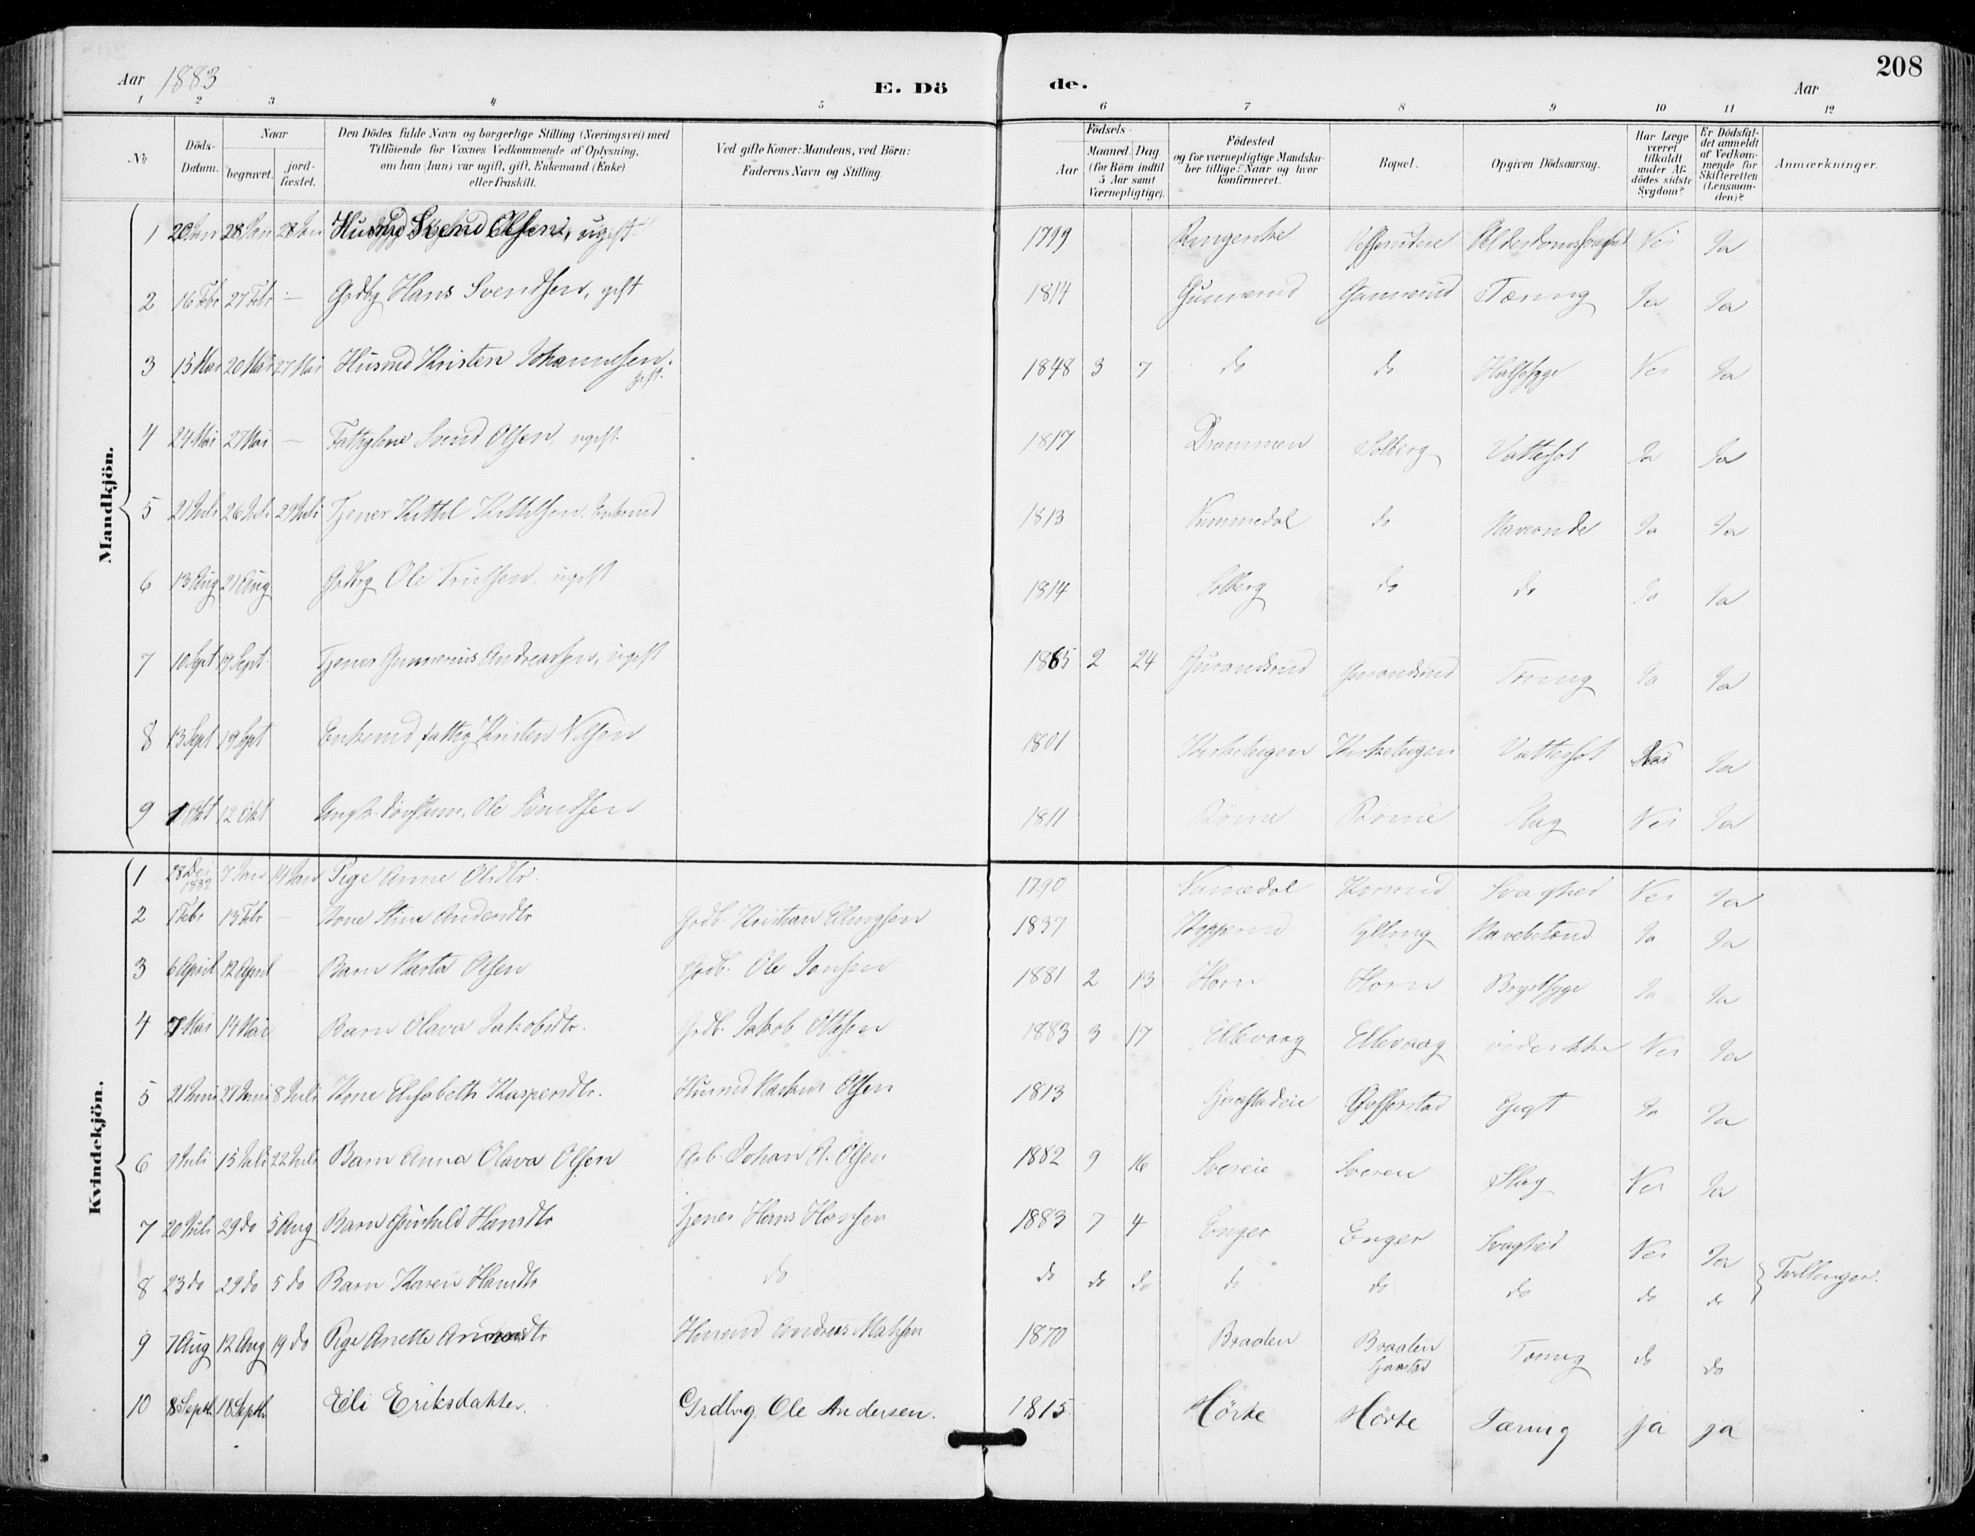 208
Aar 1883 E. Dö de. Aar
1 2 3 4 5 6 7 8 9 10 11 12
№
Döds-Datum.
Naar
begravet.
jord-fæstet.
Den Dödes fulde Navn og borgerlige Stilling (Næringsvei) med
Tilföiende for Voxnes Vedkommende af Oplysning,
om han (hun) var ugift, gift, Enkemand (Enke)
eller fraskilt.
Ved gifte Koner: Mandens, ved Börn:
Faderens Navn og Stilling.
Födsels-
Aar Maaned. Dag.
(for Börn indtil
5 Aar samt
Værnepligtige).
Födested
og for værnepligtige Mandska-
ber tillige: Naar og hvor
konfirmeret.
Bopæl.
Opgiven Dödsaarsag.
Har Læge
været
tilkaldt
under Af-
dödes sidste
Sygdom?
Er Dödsfal-
det anmeldt
af Vedkom-
mende for
Skifteretten
(Lensman-
den)?
Anmærkninger.
Mandkjön.
1 20 Jan 28 Jan 28 Jan Svend Olsen, ugift 1799 Ringerike Alderdomssvaghed Nei Ja
2 16 Febr 27 Febr — Grdbg Hans Svendsen, gift 1814 Gunnerud Gunnerud Tæring Ja Ja
3 15 Mai 20 Mai 27 Mai Husmd Kristen Johannesen. gift. 1848 3 7 do do Halssyge Nei Ja
4 24 Mai 27 Mai — Svend Olsen ugift. 1817 Drammen Solberg Vattersot Ja Ja
5 21 Juli 26 Juli 29 Juli Tjener Kittil Kittilsen. Enkemd 1813 Nummedal do Ja Ja
6 13 Aug 21 Aug Grdbg Ole Trulsen ugift 1814 Solberg do do Ja Ja
7 10 Sept 19 Sept. Tjener Gunnerius Andreassen, ugift 1865 2 24 Gurandsrud Gurandsrud Tæring Ja Ja
8 13 Sept 19 Sept Enkemd fattig Kristen Nilsen 1801 Vattersot Nei Ja
9 1 Okt 12 Okt Ole Svendsen 1811 Slag Nei Ja
Kvindekjön.
1 28 Dec 1882 7 Jan 14 Jan Pige Anne Olsdtr. 1790 Numedal Svaghed Nei Ja
2 1 Febr 13 Febr — Kone Stine Andersdtr Grdb. Kristian Ellingsen 1837 Sylling Ja Ja
3 6 April 12 April — Barn Marta Olsen Grdb. Ole Jonsen 1881 2 13 Horn Horn Brystsyge Ja Ja
4 7 Mai 14 Mai Barn Olava Jakobsdtr. Grdb. Jakob Olsen 1883 3 17 Ellevaag Ellevaag vides ikke Nei Ja
5 21 Juni 29 Juni 8 Juli Kone Elisabeth Kaspersdtr. Husmd Markus Olsen 1813 Gigt Ja Ja
6 9 Juli 15 Juli 22 Juli Barn Anna Olava Olsen Arb. Johan A. Olsen 1882 9 16 Slag Nei Ja
7 20 Juli 29 do 5 Aug Barn Gunhild Hansdtr Tjener Hans Hansen 1883 7 4 Enger Enger Svaghed Nei Ja
8 23 do 29 do 5 do Barn Karen Hansdtr do do do do do do do do do Tvillinger.
9 7 Aug 12 Aug 19 do Pige Anette Andreasdtr Husmd Andreas Matsen 1870 Braaten Braaten Tæring do do
10 8 Septr. 18 Septbr Eli Eriksdatter. Grdbrg. Ole Andersen. 1815. Hörte Hörte Tæring ja ja